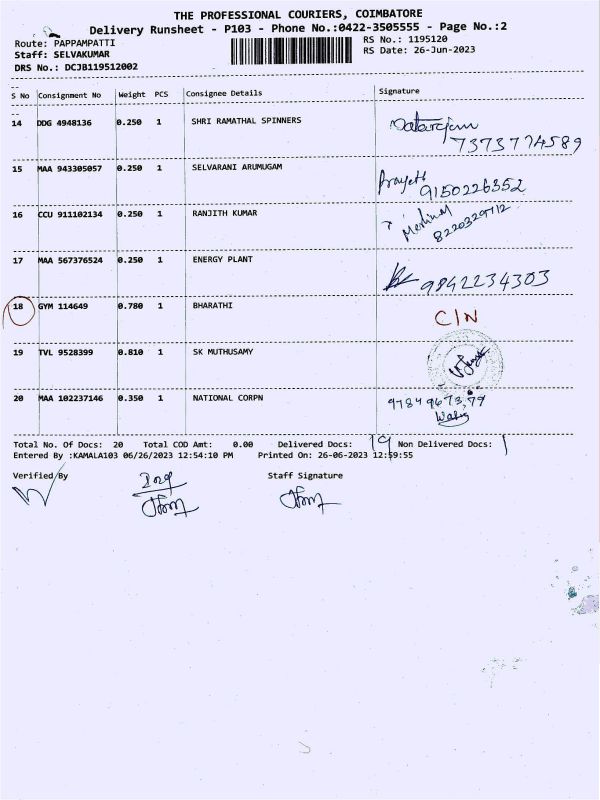 THE PROFESSIONAL COURIERS, COIMBATORE
Delivery Runsheet - P103 - Phone No.:0422-3505555 - Page No.:2
Route: PAPPAMPATTI
RS No.: 1195120
Staff: SELVAKUMAR
RS Date: 26-Jun-2023
DRS No.: DCJB119512002
S No Consignment No Weight PCS Consignee Details Signature
14 DDG 4948136 0.250 1 SHRI RAMATHAL SPINNERS
7373774589
15 MAA 943305057 0.250 1 SELVARANI ARUMUGAM
9150226352
16 CCU 911102134 0.250 1 RANJITH KUMAR
8220329712
17 MAA 567376524 0.250 1 ENERGY PLANT 9842234303
18 GYM 114649 0.780 1 BHARATHI C/N
19 TVL 9528399 0.810 1 SK MUTHUSAMY
20 MAA 102237146 0.350 1 NATIONAL CORPN
Total No. Of Docs: 20 Total COD Amt: 0.00 Delivered Docs: 19 Non Delivered Docs: 1
Entered By :KAMALA103 06/26/2023 12:54:10 PM Printed On: 26-06-2023 12:59:55
Verified By Staff Signature